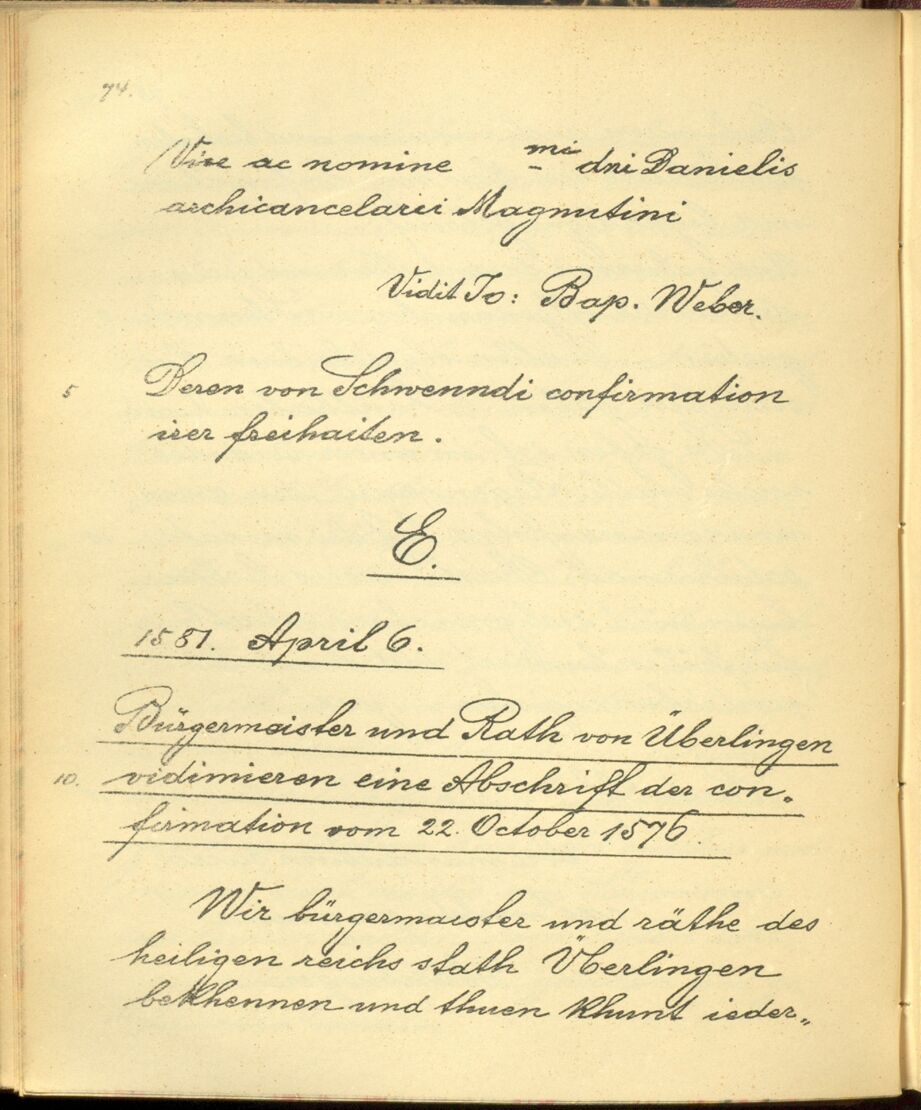 74.
Vice ac nomine mi dni Danielis
archicancelarii Magnutini
Vidit Jo: Bap. Weber.
5 Deren von Schwenndi confirmation
irer freihaiten.
E.
1581. April 6.
Bürgermeister und Rath von Überlingen
10. vidimieren eine Abschrift der con„
firmation vom 22. October 1576.
Wir bürgermaister und räthe des
heiligen reichs stath Überlingen
bekhennen und thuen khunt ieder„